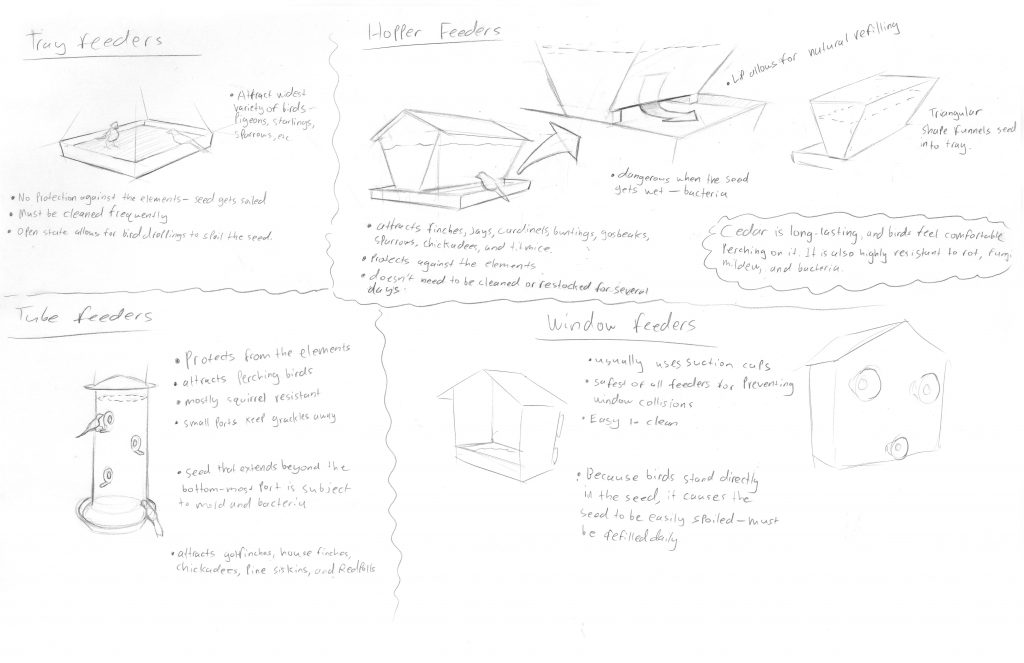 Tray feeders
• Attract widest
variety of birds –
pigeons, starlings,
sparrows, etc
• No Protection against the elements – seed gets soiled
• Must be cleaned frequently
• Open state allows for bird droppings to spoil the seed.
Hopper Feeders
• Lip allows for natural refilling
Triangular
shape funnels seed
into tray.
• dangerous when the seed
gets wet – bacteria
• attracts finches, jays, cardinels, buntings, gosbeaks,
sparrows, chickadees, and titmice.
• Protects against the elements.
• doesn't need to be cleaned or restocked for several
days.
Cedar is long-lasting, and birds feel comfortable
Perching on it. It is also highly resistant to rot, fungi,
mildew, and bacteria.
Tube feeders
• Protects from the elements
• attracts perching birds
• mostly squirrel resistant
• small ports keep grackles away
• seed that extends beyond the
bottom-most port is subject
to mold and bacteria
• attracts golfinches, house finches,
chickadees, Pine siskins, and RedPolls
Window feeders
• usually uses suction cups
• safest of all feeders for Preventing
window collisions
• Easy to clean
• Because birds stand directly
in the seed, it causes the
seed to be easily spoiled – must
be refilled daily